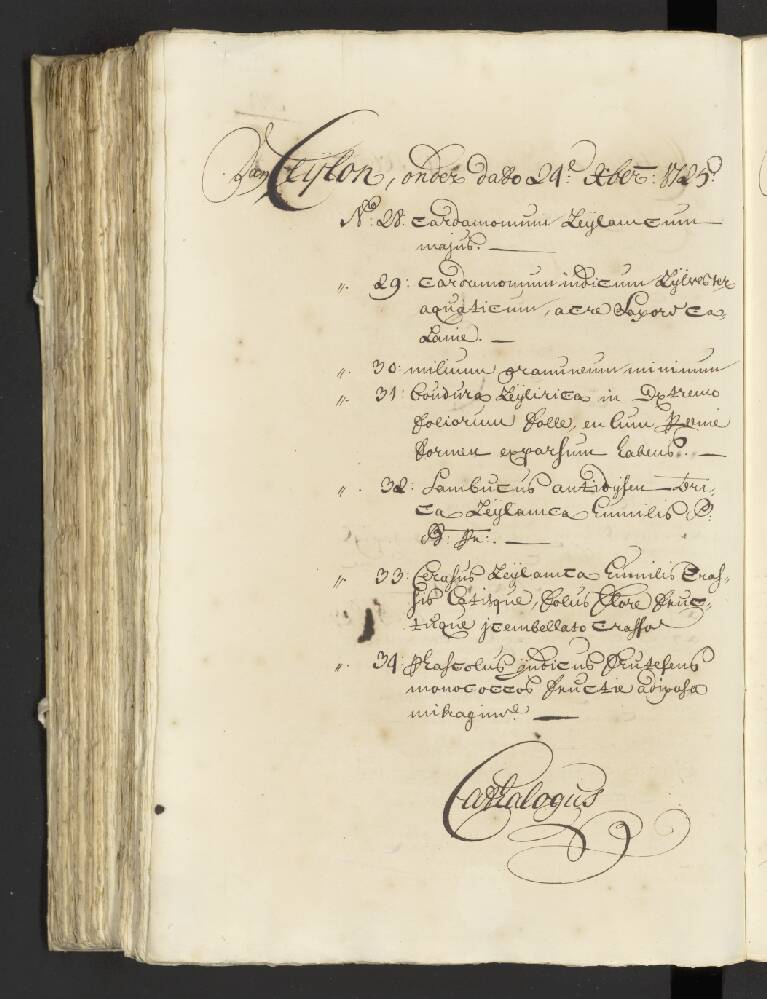 Van Ceijlon, onder dato 24:e xber: 1725.
No: 28: Cardamomum Zeijlanicum
majus. —
„. 29: Cardamomum indicum Sijlvester
aquaticum, acre Sapore Ca-
lanie. —
„. 30: milium gramineum minimum
„. 31: Condura Zeijlinica in Extremo
foliorum folle, en lum penne
formen exparsum habens. —
„. 32: Sambucus antidijsen_tri-
ca Zeijlanica humilis
„. 33: Cerasus Zeijlanica humilis Cras-
sis Latisque, folus flore fruc-
tuque jcembellato Crasso
„. 34: Phaseolus jndicus frutesens
monococcos fructu adiposa
Cathalogus